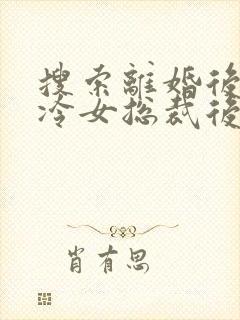 搜索離婚後
冷女总裁後
肖有思